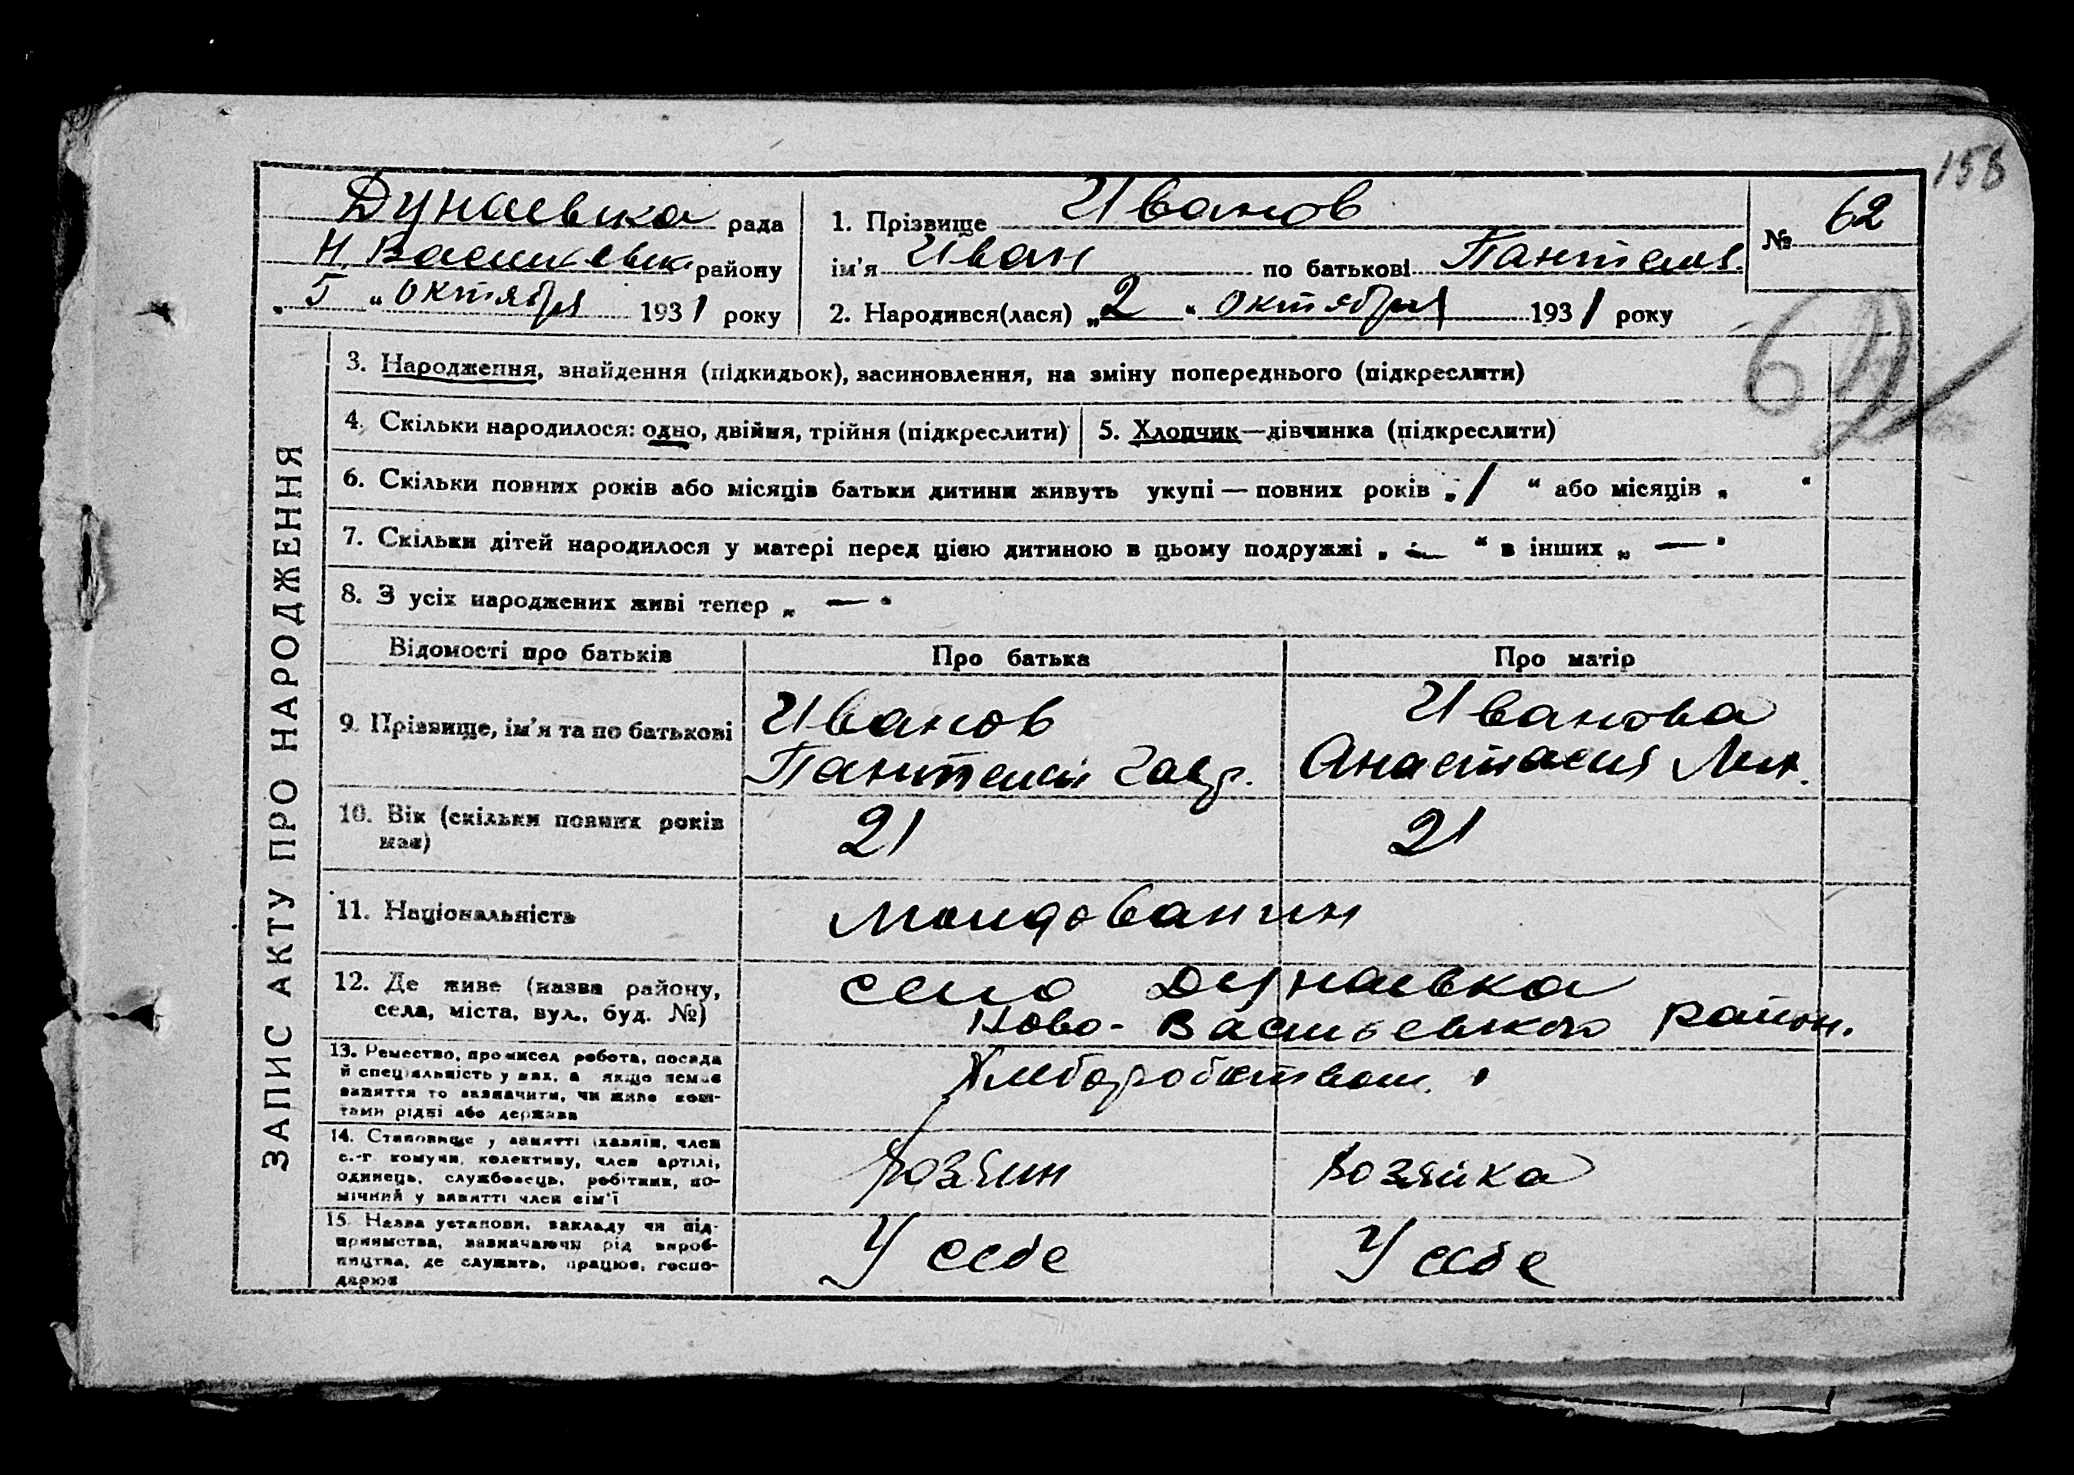 158
Дунаевка рада
Н. Васильевск. району
„ 5 “ октября 1931 року
1. Прізвище Иванов
ім'я Иван по батькові Пантелей.
2. Народився(лася) „2“ октября 1931 року
№ 62
62
ЗАПИС АКТУ ПРО НАРОДЖЕННЯ
3. Народження, знайдення (підкидьок), васиновлення, на зміну попереднього (підкреслити)
4. Скільки народилося: одно, двійня, трійня (підкреслити)
5. Хлопчик—дівчинка (підкреслити)
6. Скільки повних років або місяців батьки дитини живуть укупі — повних років „ 1 “ або місяців „ “
7. Скільки дітей народилося у матері перед цією дитиною в цьому подружжі „ — “ в інших „ — “
8. З усіх народжених живі тепер „ — “
Відомості про батьків
Про батька
Про матір
9. Прізвище, ім'я та по батькові
Иванов
Пантелей Гавр.
Иванова
Анастасия
10. Вік (скільки повних років
має)
21
21
11. Національність
молдованин
12. Де живе (назва району,
села, міста, вул., буд. №)
село Дунаевка
Ново-Васильевского район.
13. Ремество, промисел робота, посада
й спеціяльність у них, а якщо немає
заняття то зазначити, чи живе кош-
тами рідні або держави
Хлеборобством
14. Становище у занятті (хазяїн, член
с.-г. комуни, колективу, член артілі,
одинець, службовець, робітник, по-
мічний у занятті член сім'ї
хозяин
хозяйка
15. Назва установи, закладу чи під-
приємства, зазначаючи рід вироб-
ництва, де служить, працює, госпо-
дарює
У себе
У себе